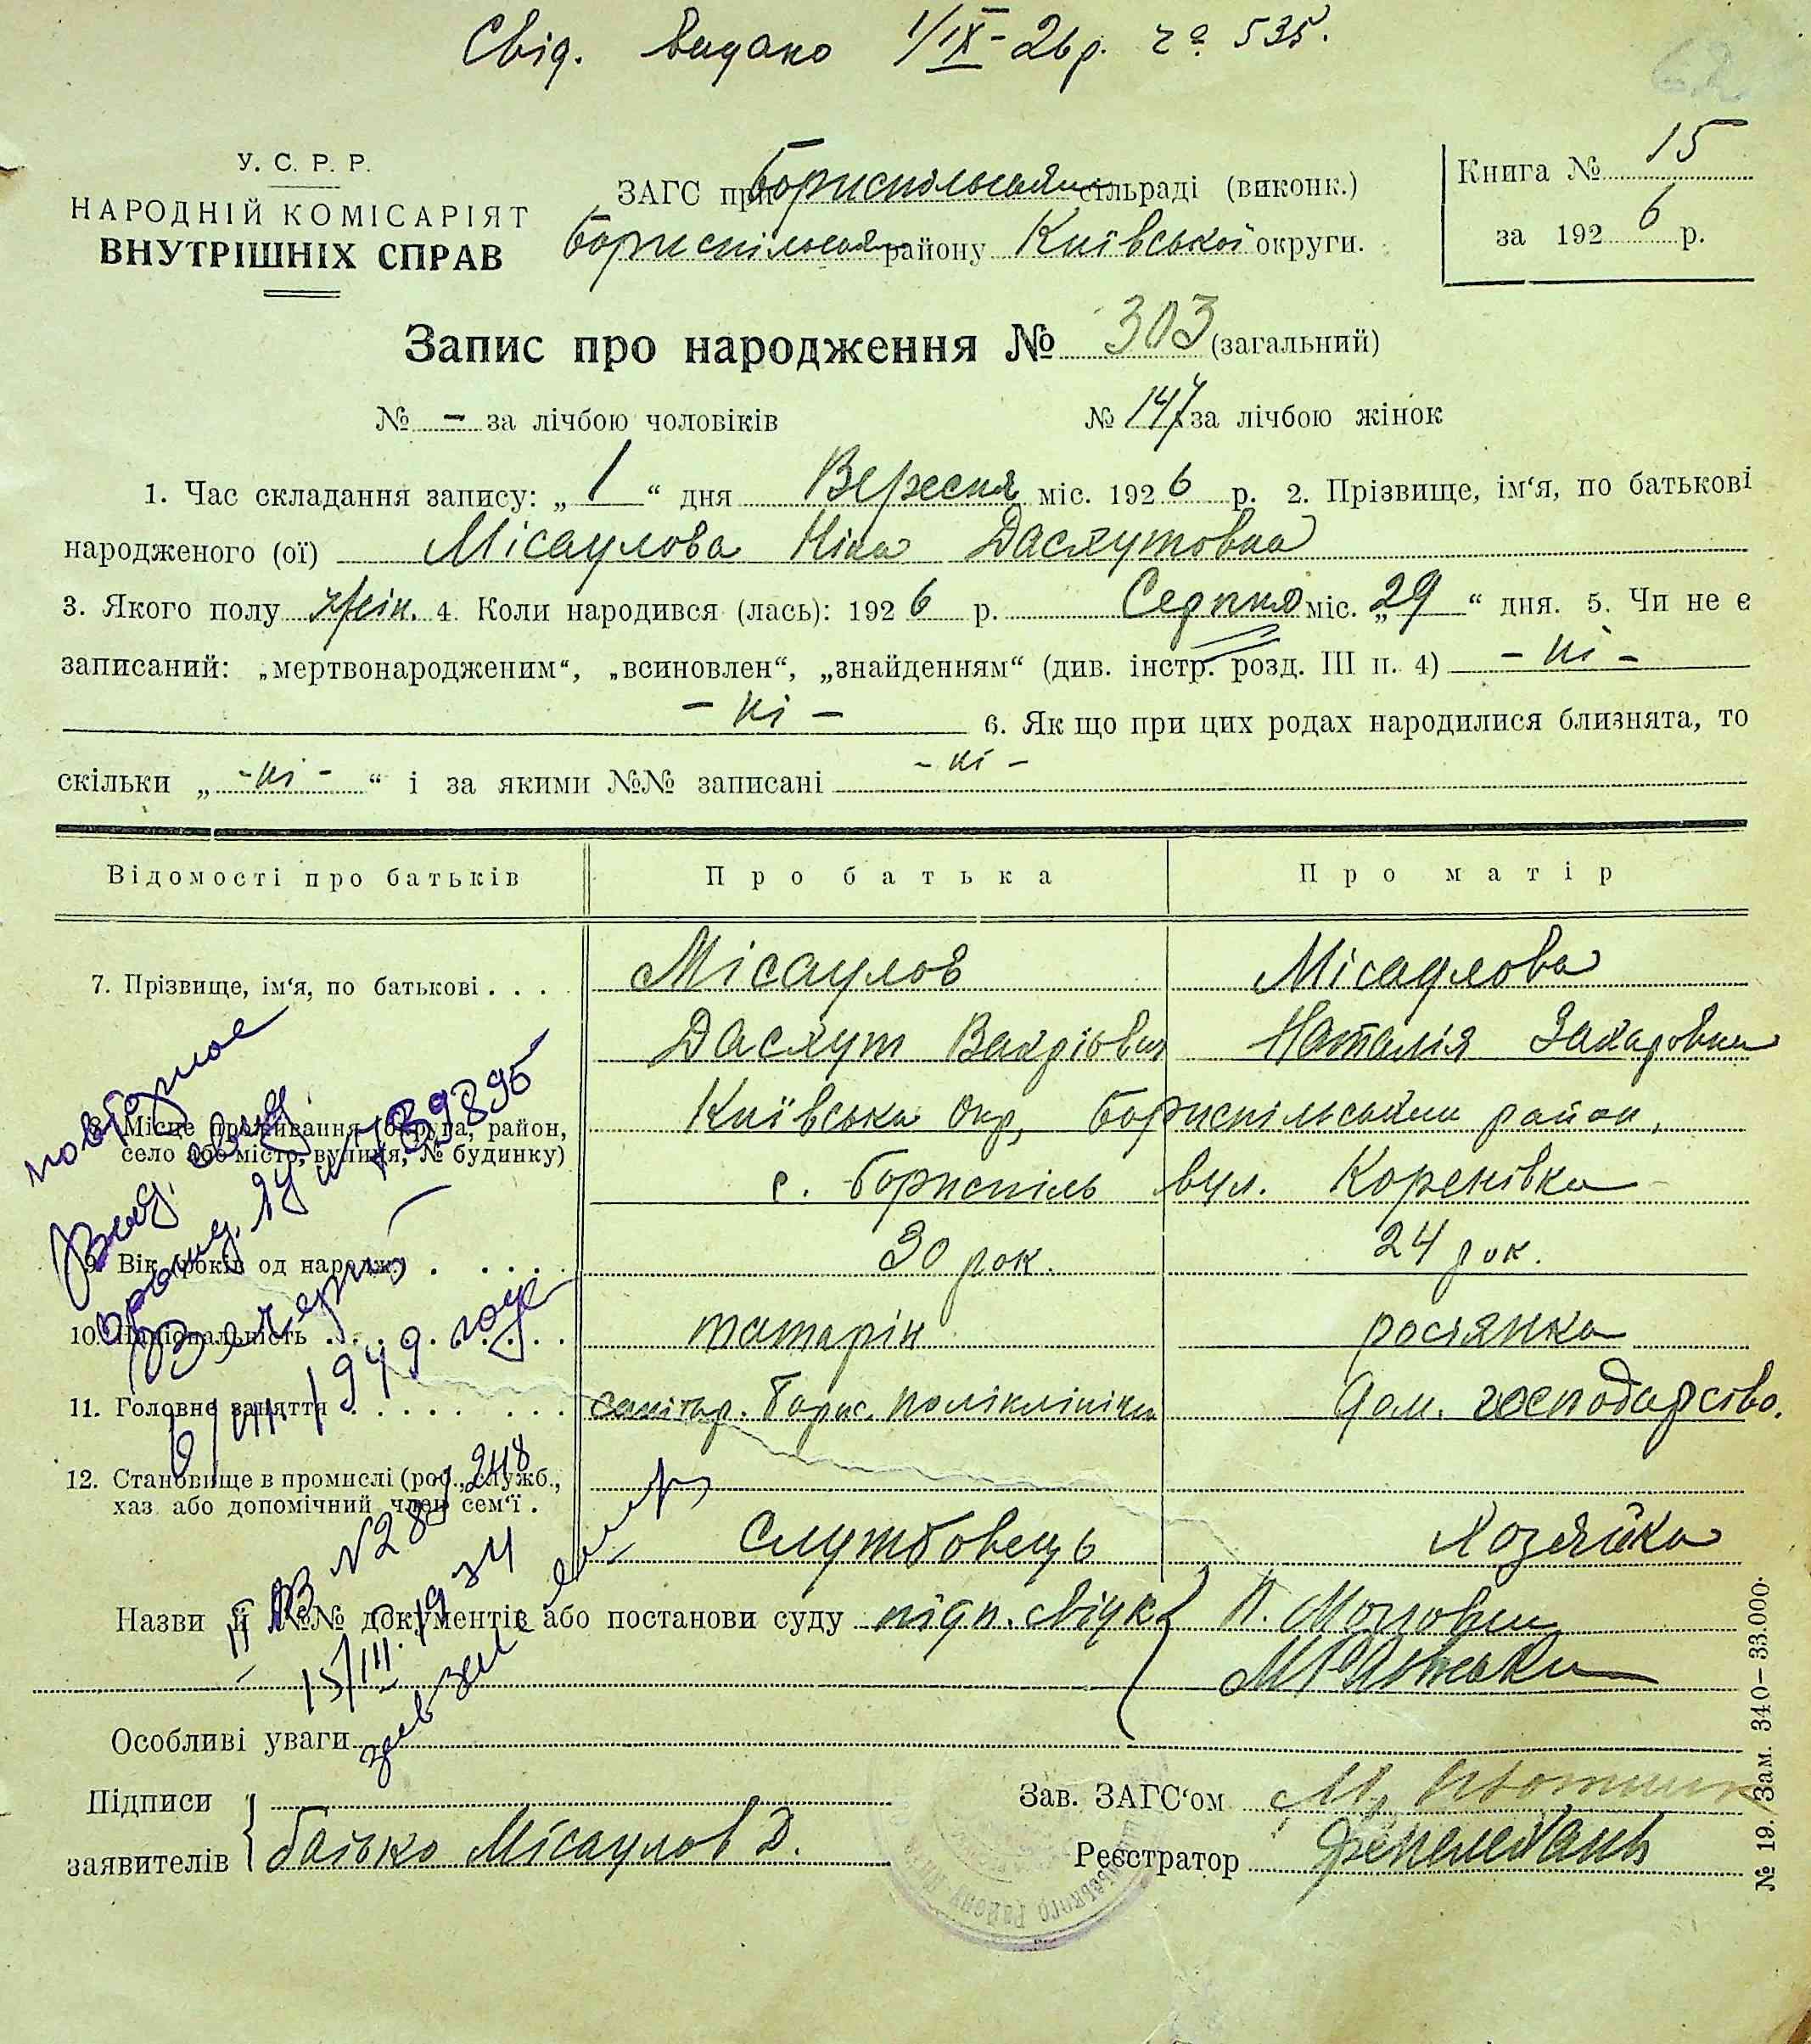 Свід. видано 1/IX-26р. № 535.
У. С. Р. Р.
НАРОДНІЙ КОМІСАРІЯТ
ВНУТРІШНІХ СПРАВ
ЗАГС при Бориспільськ. сільраді (виконк.)
Бориспільськ. району Київської округи.
Книга № 15
за 1926 р.
Запис про народження № 303 (загальний)
№ – за лічбою чоловіків № 147 за лічбою жінок
1. Час складання запису: „ 1 “ дня Вересня міс. 1926 р. 2. Прізвище, ім‘я, по батькові
народженого (ої) Місаулова Ніна Дасхутовна
3. Якого полу жін. 4. Коли народився (лась): 1926 р. Серпня міс. „29“ дня. 5. Чи не є
записаний: „мертвонародженим“, „всиновлен“, „знайденням“ (див. інстр. розд. III п. 4) – ні –
– ні – 6. Як що при цих родах народилися близнята, то
скільки „ - ні - “ і за якими №№ записані - ні -
Відомості про батьків Про батька Про матір
7. Прізвище, ім‘я, по батькові . . . Місаулов Місаулова
Дасхут Вахріович Наталія Захаровна
8. Місце проживання (округа, район, село або місто, вулиця, № будинку) Київська окр, Бориспільський район,
с. Бориспіль вул. Коренівка
9. Вік (років од народж.) . . . . 30 рок. 24 рок.
10. Національність . . . . . . . татарін росіянка
11. Головне заняття . . . . . . . . саніт Борис. поліклініки Дом. господарство.
12. Становище в промислі (роб., служб., хаз. або допомічний член сем‘ї .
Службовець Хозяйка
Назви й №№ документів або постанови суду підп. свідк.
Особливі уваги
Підписи
заявителів батько Місаулов Д.
Зав. ЗАГС‘ом
Реєстратор
повторное
1949 года
15/III 1934
№ 19. Зам. 340—33.000.